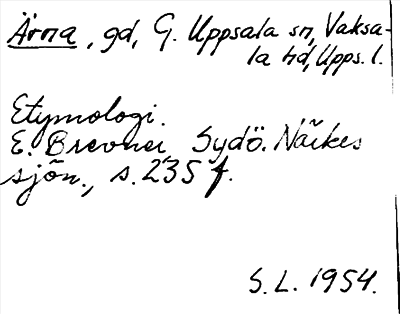 Ärna, gd, G. Uppsala sn, Vaksa-
la hd, Upps. l.
Etymologi.
E. Brevner, Sydö. Närkes
sjön., s. 235 f.
S. L. 1954.